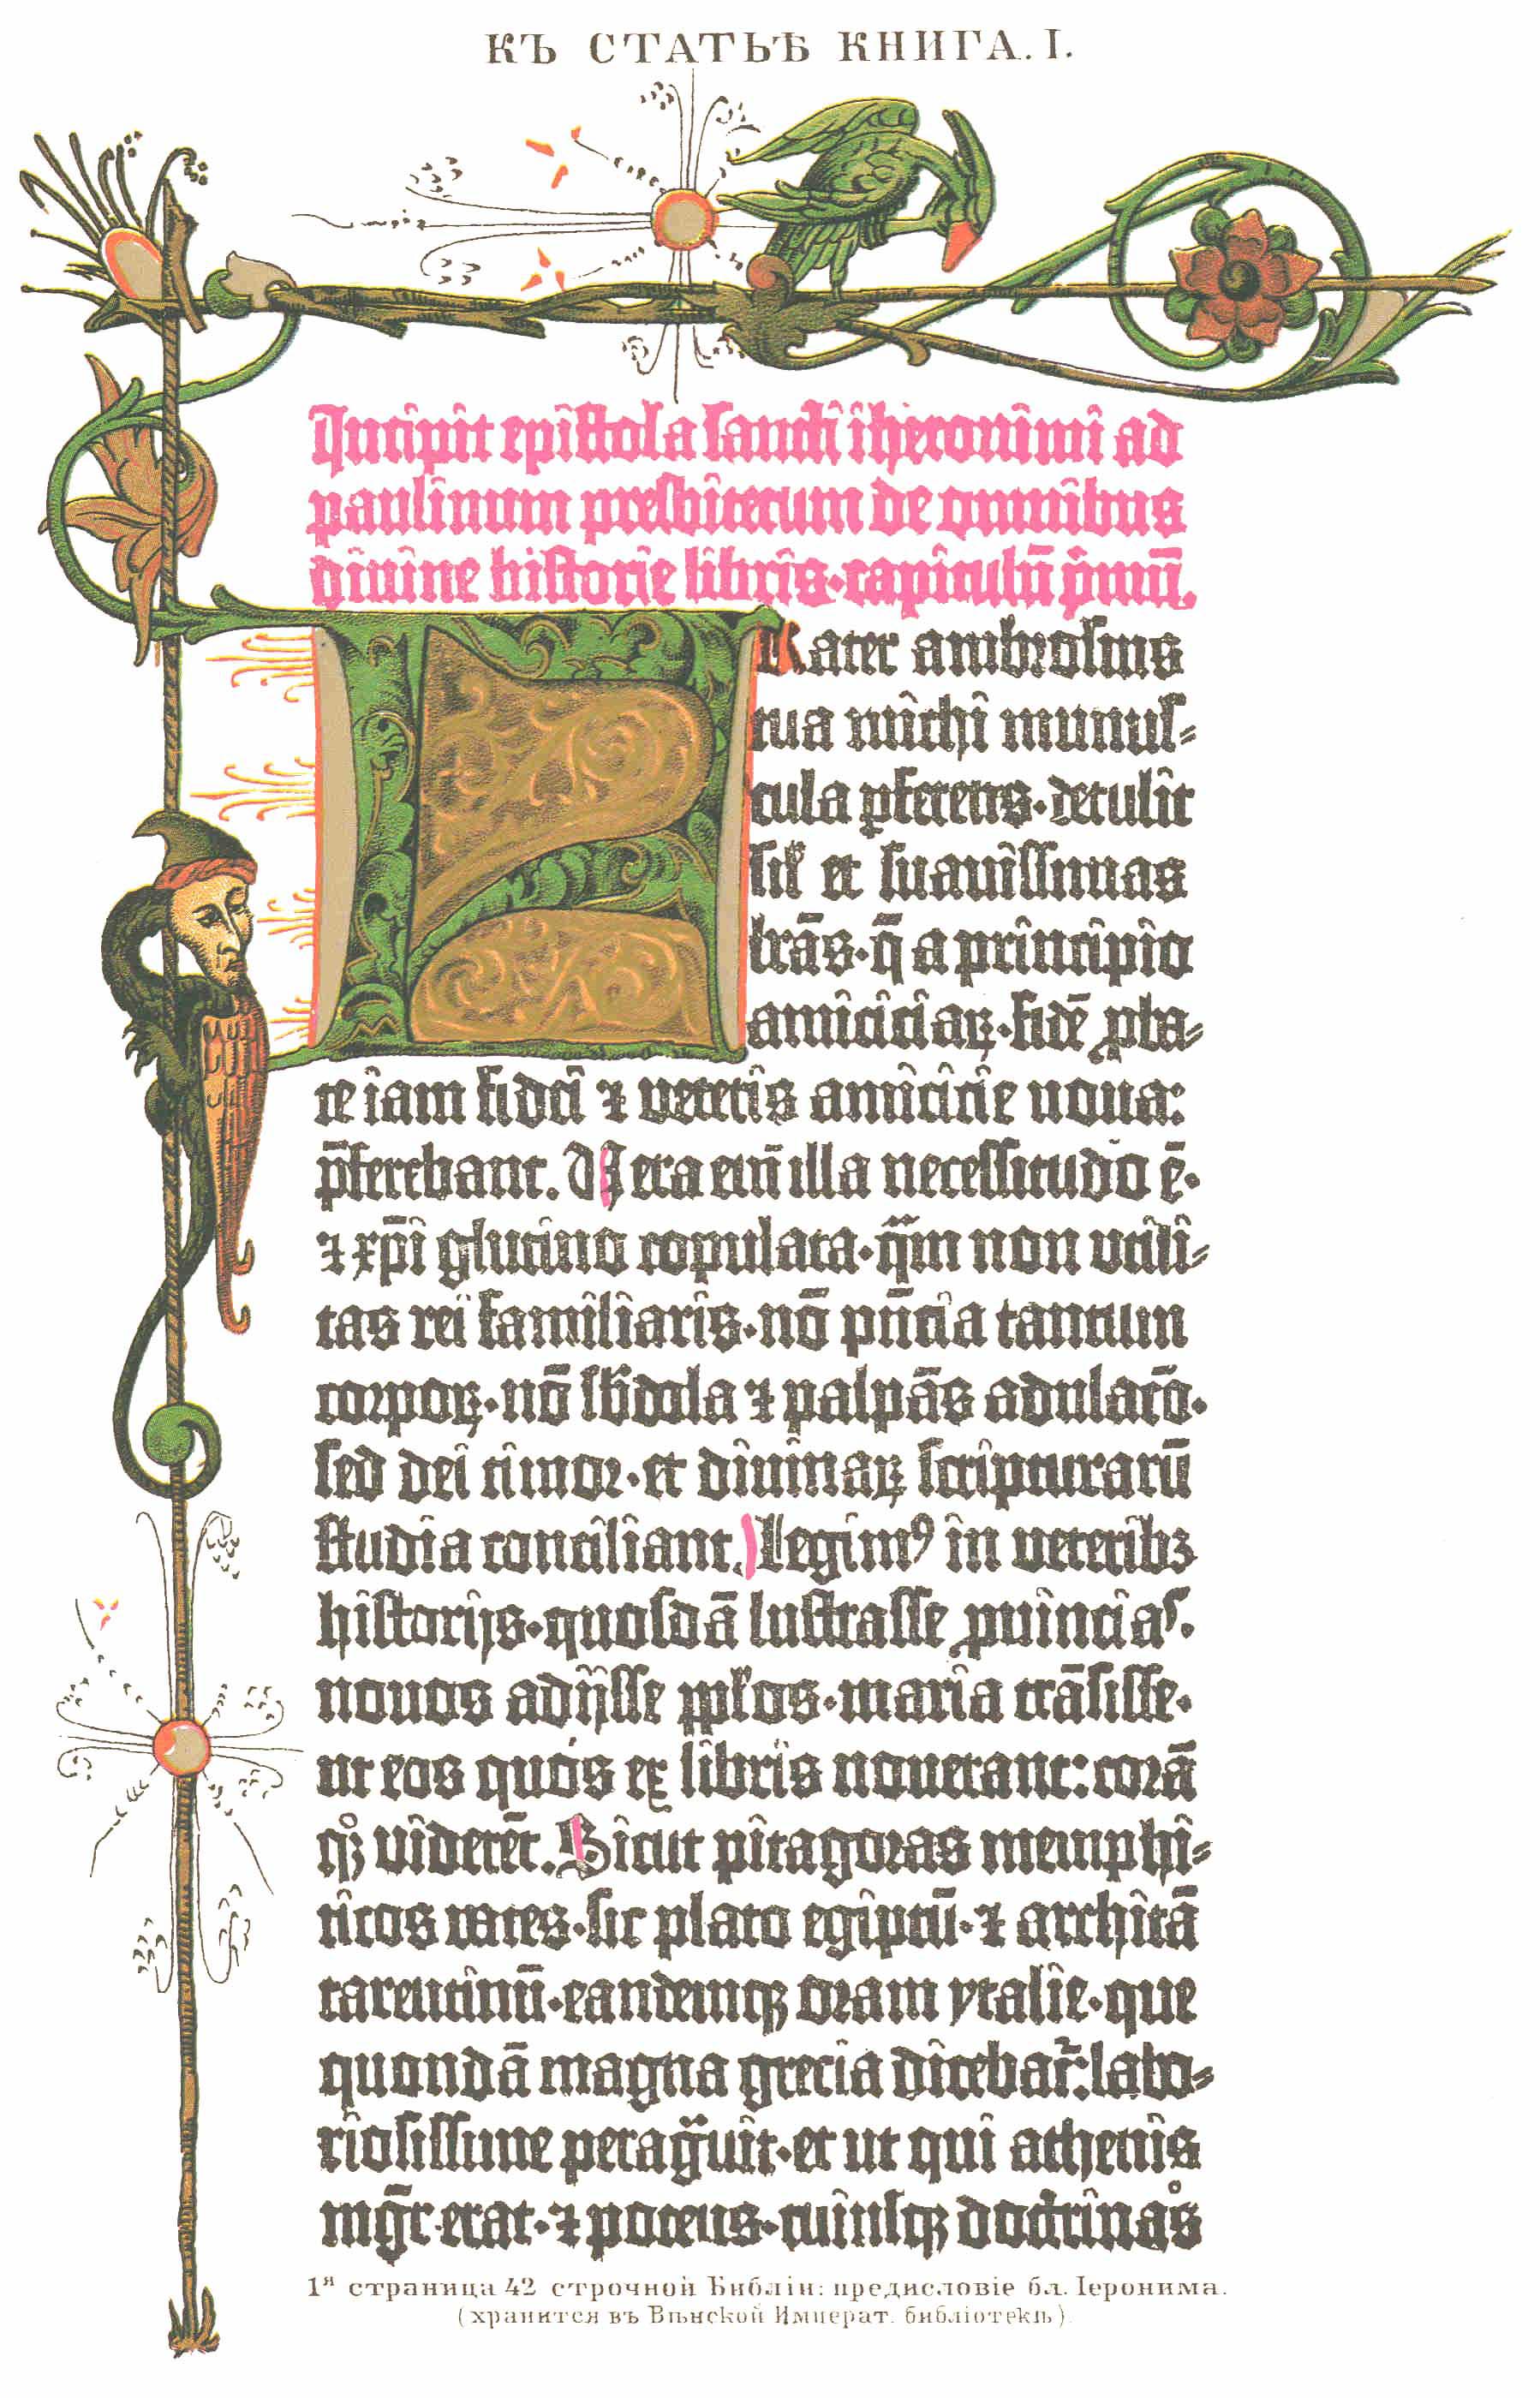 КЪ СТАТЬѢ КНИГА. I.
Incipit epistola sancti iheronimi ad
paulinum presbiterum de omnibus
divine historie libris·capitulū p̓mū.
FRater ambrosius
tua michi munus-
cula ꝑferens·detulit
sił et suauissimas
lr̄as·q̄ a principio
amiciciaꝝ·fidē ꝓba-
te iam fidei ⁊ veteris amicicie noua:
p̄ferebant. Vera eni̅ illa necessitudo ē·
⁊ xp̄i glutino copulata·qͣm non utili-
tas rei familiaris·nō pn̄cia tantum
corpoꝝ·nō sb̓dola ⁊ palpās adulacō·
sed dei timor·et diuinaꝝ scripturarū
studia conciliant. Legimꝰ in veteribꝫ
historijs·quosdā lustrasse ꝓuincias·
nouos adijsse ppl̓os·maria trāsisse·
ut eos quos ex libris nouerant: corā
qꝫ viderēt. Sicut pitagoras memphi-
ticos vates·sic plato egiptū·⁊ architā
tarentinū·eandemqꝫ oram ytalie·que
quondā magna grecia dicebat᷑: labo-
riosissime peragͣuit·et ut qui athenis
mgr̄ erat·⁊ potens·cuiusqꝫ doctrinas
1я страница 42 строчной Библіи: предисловіе бл. Іеронима.
(хранится въ Вѣнской Императ. библіотекѣ).